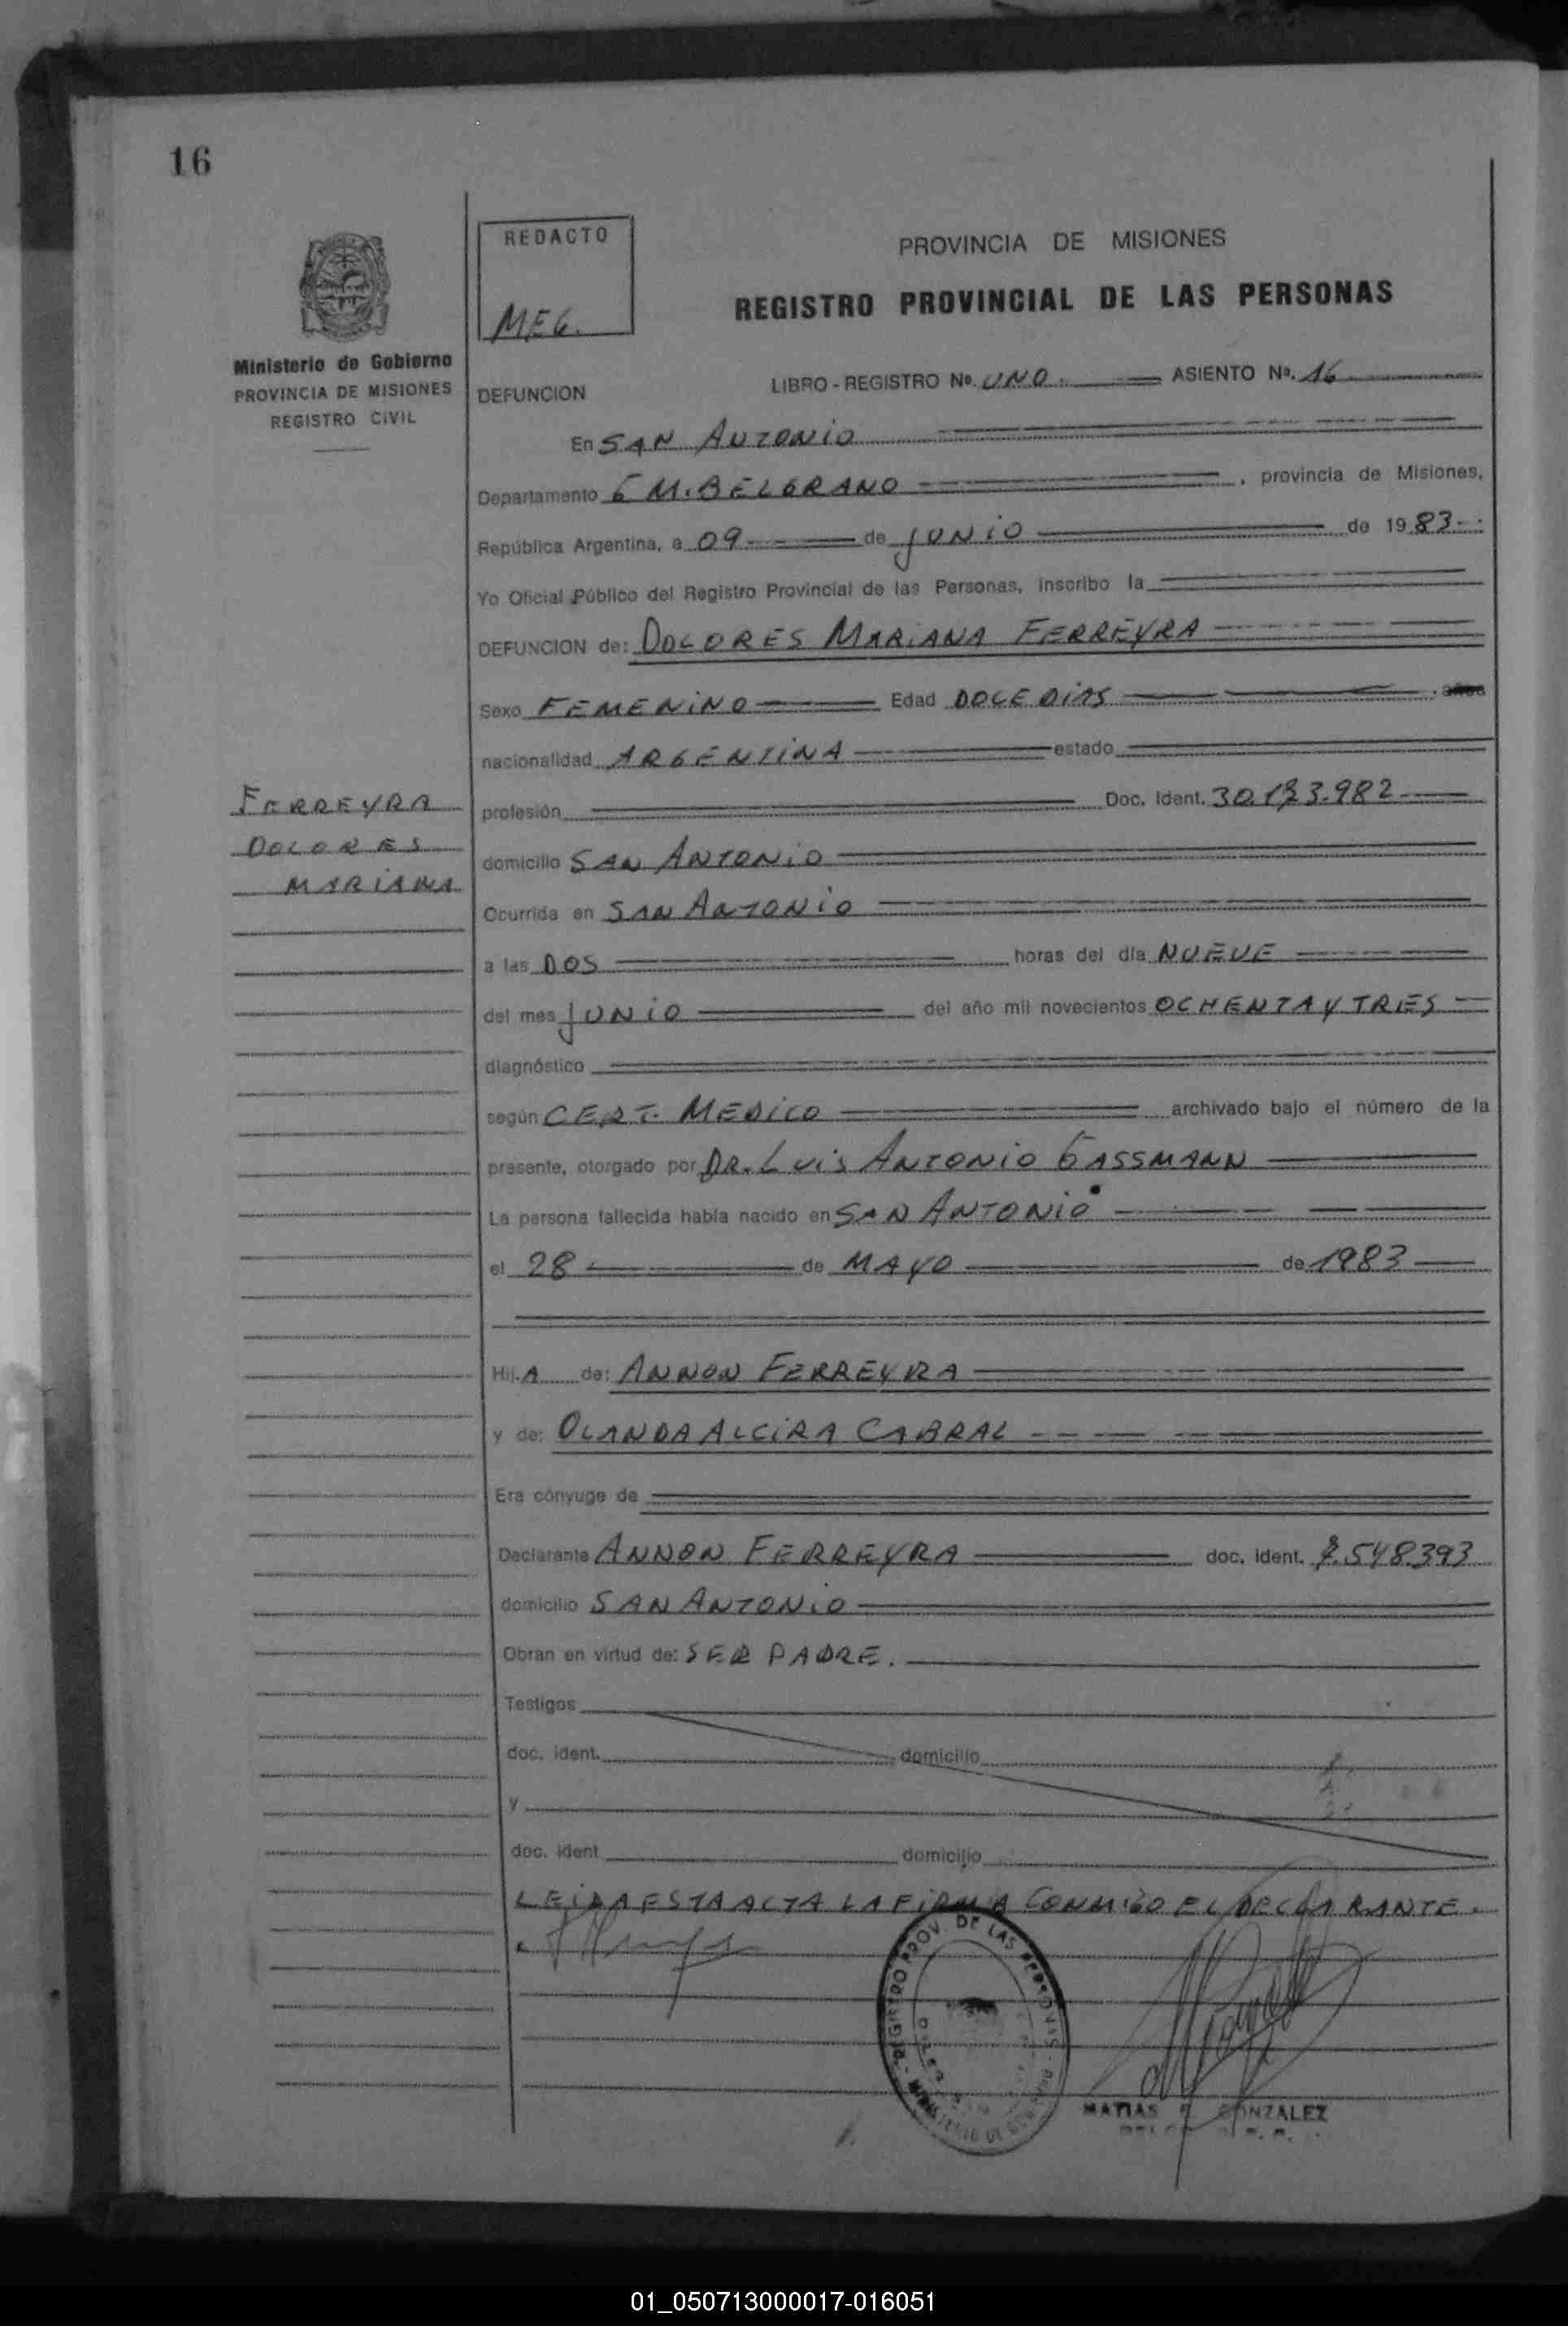 16
REDACTO
MEG.
PROVINCIA DE MISIONES
REGISTRO PROVINCIAL DE LAS PERSONAS
Ministerio de Gobierno
PROVINCIA DE MISIONES
REGISTRO CIVIL
DEFUNCION
LIBRO - REGISTRO Nº. UNO ASIENTO Nº. 16
En SAN ANTONIO
Departamento G M. BELGRANO, provincia de Misiones,
República Argentina, a 09 de JUNIO de 1983
Yo Oficial Público del Registro Provincial de las Personas, inscribo la
DEFUNCION de: DOLORES MARIANA FERREYRA
Sexo FEMENINO Edad DOCE DIAS
nacionalidad ARGENTINA estado
FERREYRA
DOLORES
MARIANA
profesión Doc. Ident.
domicilio SAN ANTONIO
Ocurrida en SAN ANTONIO
a las DOS horas del día NUEVE
del mes JUNIO del año mil novecientos OCHENTA Y TRES
diagnóstico
según CERT. MEDICO archivado bajo el número de la
presente, otorgado por DR. LUIS ANTONIO GASSMANN
La persona fallecida había nacido en SAN ANTONIO
el 28 de MAYO de 1983
Hij.A de: ANNON FERREYRA
y de: OLANDA ALCIRA CABRAL
Era cónyuge de
Declarante ANNON FERREYRA doc. ident.
domicilio SAN ANTONIO
Obran en virtud de: SER PADRE.
Testigos
doc. ident. domicilio
y
doc. ident domicilio
LEIDA ESTA ACTA LA FIRMA CONMIGO EL DECLARANTE.
REGISTRO PROV. DE LAS PERSONAS - MINISTERIO DE
MATIAS GONZALEZ
01_050713000017-016051